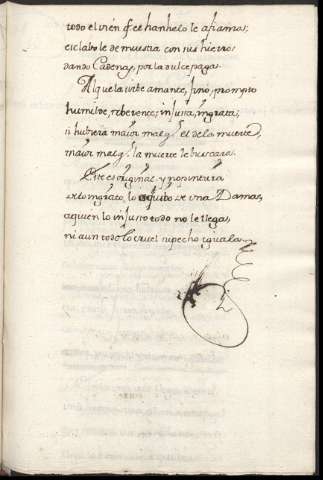 todo el vien q̃ el hanhelo le afiamas;
esclabo le demuestra con sus hierros
dando Cadenas, por la dulce paga.
Al que la vibe amante, fino, prompto
humilde, reberente; injusta, ingrata;
si hubiera maior mal q̃ el de la muerte,
maior mal q̃ la muerte le buscaras.
Este es original, y no pintura
de lo ingrato, lo injusto de una Dama,
a quien lo injusto todo no le llega,
ni aun todo lo cruel su pecho iguala.